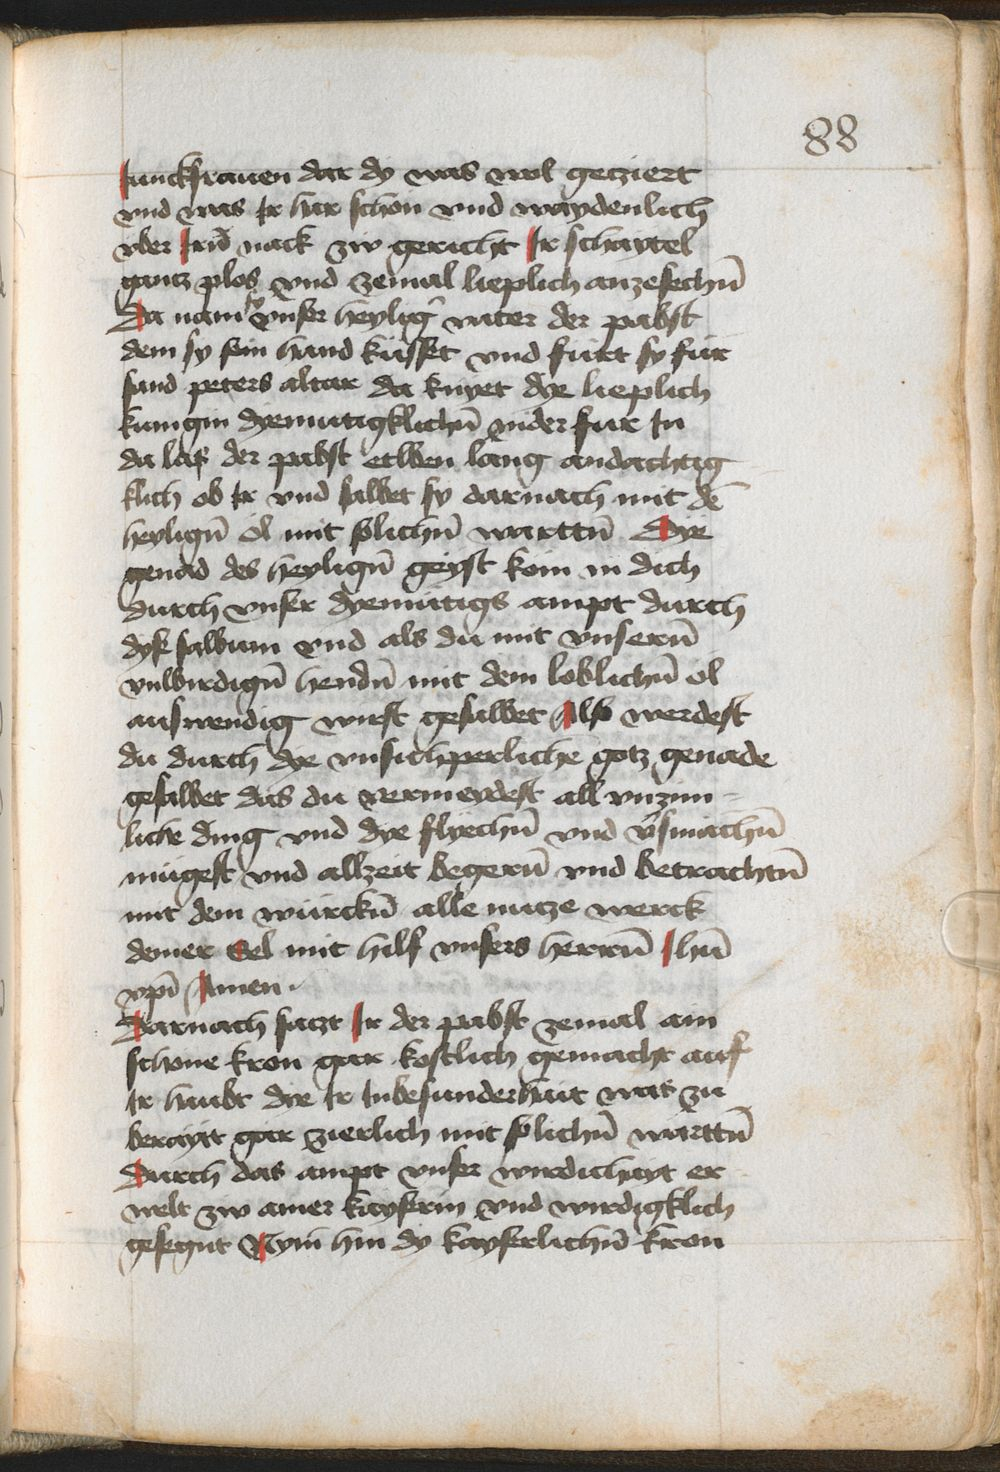 88
Junckfrauen dar dy was wol geziert
vnd was Ir har schon vnd waydenlich
vber Irn̄ nack zw gericht Ir schaytel
gantz plos vnd zemal lieplich anzesechn̄
Da nam sy vnser heyliḡ vater der pabst
dem sy sein hand küsset vnd fürt sy für
sand peters altar da knyet dye lieplich
kunigin dyemutigklichn̄ nider fur In
da las der pabst etwen lang andachtig
klich ob Ir vnd salbet sy darnach mit dē
heylign̄ öl mit solichn̄ warttn̄ Dye
genad des heylign̄ geyst kom in dich
durch vnser dyemütigs ampt durch
dyse salbum vnd als du mit vnsern̄
vnwirdign̄ hendn̄ mit dem loblichn̄ öl
auswendig wirst gesalbet Also werdest
du durch dye vnsichperliche gotz genade
gesalbet das du vermeydest all vnzim=
liche ding vnd dye flyechn̄ vnd v̄smachn̄
mügest vnd allzeit begern̄ vnd betrachtn̄
mit dem würckn̄ alle nutze werck
deiner Sel mit hilf vnsers herrn̄ Ihū
xpī Amen
Darnach satzt Ir der pabst zemal ain
schone kron gar kostlich gemacht auf
Ir haubt dye Ir Inbesunderhait was zu
berayt gar zierlich mit solichn̄ warttn̄
Durch das ampt vnser wirdichayt er
welt zw ainer kayserin vnd wirdigklich
gesegnt Nym hin dy kayserlichn̄ kron